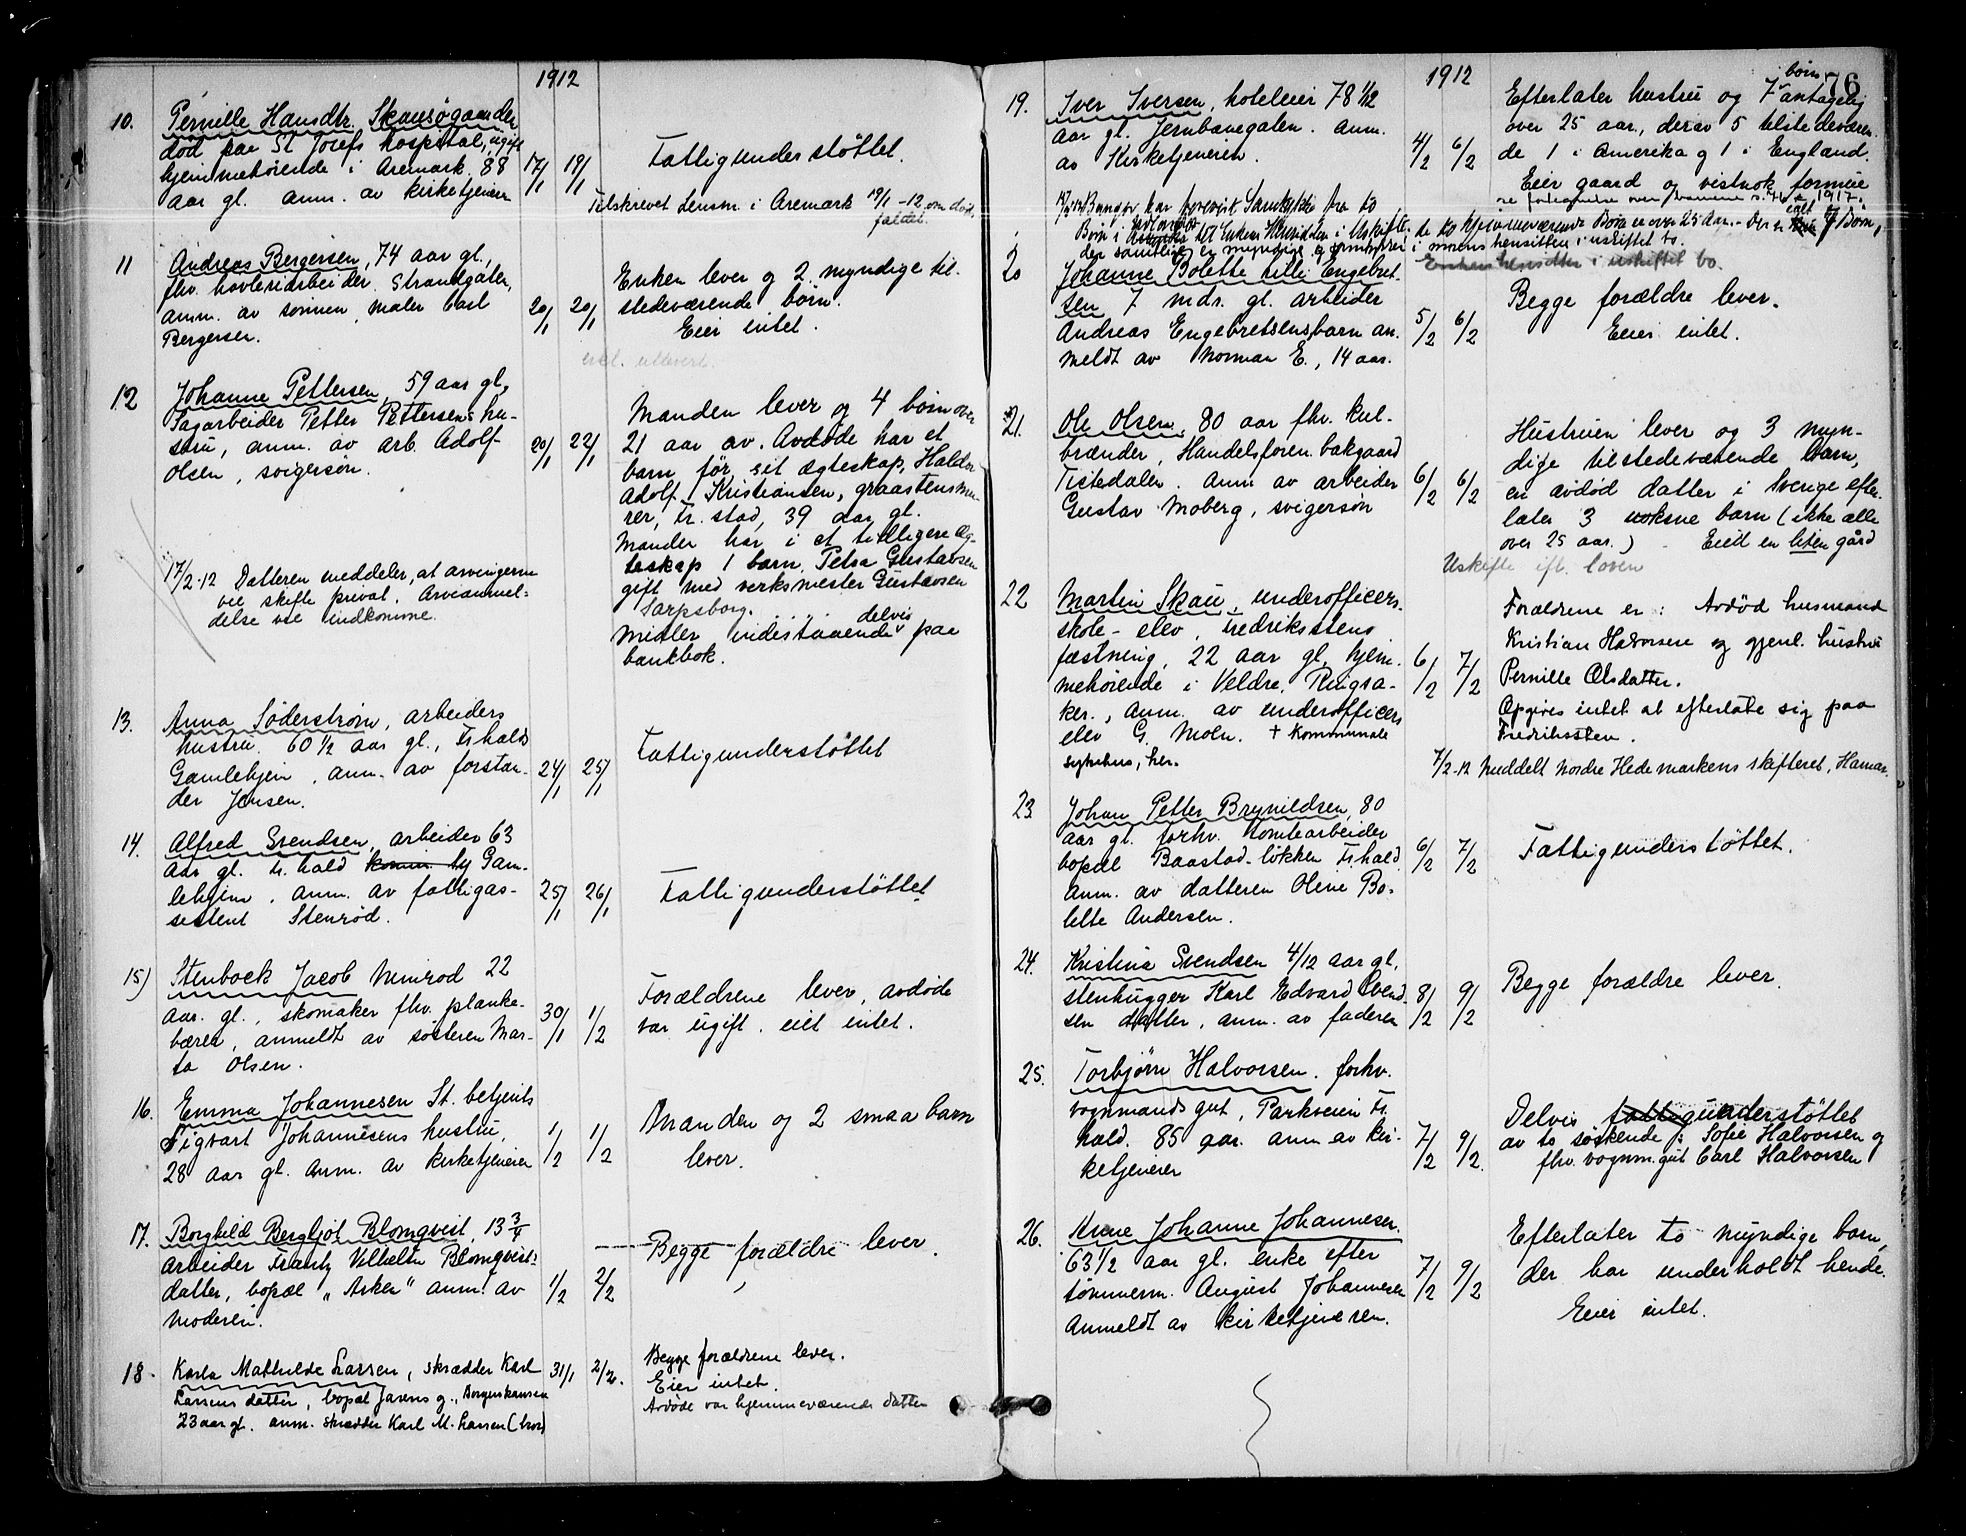 1912
10. Pernille Hansdtr. Skausøgaarden
død paa St Josefs hospital, ugift
hjemmehørende i Aremark, 88
aar gl. anm. av kirketjener
17/1 19/1
Fattigunderstøttet.
Tilskrevet Lensm. i Aremark 19/1 -12 om døds-
faldet.
11 Andreas Bergersen, 74 aar gl.,
fhv. høvleriarbeider, Strandgaten,
anm. av sønnen, maler Carl
Bergersen.
20/1 20/1
Enken lever og 2 myndige til-
stedeværende børn.
Eier intet.
12 Johanne Pettersen, 59 aar gl.
Sagarbeider Petter Pettersens hu-
stru, anm. av arb. Adolf
Olsen, svigersøn.
20/1 22/1
17/2-12 Datteren meddeler, at arvingerne
vil skifte privat. Arveanmel-
delse vil indkomme.
Manden lever og 4 børn over
21 aar av. Avdøde har et
barn før sit ægteskap, Haldor
Adolf Kristiansen, graastensmu-
rer, Fr. stad, 39 aar gl.
Manden har i et tidligere æg-
teskap 1 barn, Petra Gustavsen
gift med verksmester Gustavsen
Sarpsborg.
Midler indestaaende delvis paa
bankbok.
13. Anna Søderstrøm, arbeiders
hustru. 60 1/2 aar gl., Fr.halds
Gamlehjem, anm. av forstan-
der Jensen.
24/1 25/1
Fattigunderstøttet
14. Alfred Svendsen, arbeider 63
aar gl. Fr.hald komm. sy Gam-
lehjem. anm. av fattigas-
sistent Stenrød.
25/1 26/1
Fattigunderstøttet
15) Stenbock Jacob Nimrod 22
aar. gl., skomaker fhv. planke-
bærer, anmeldt av søsteren Mar-
ta Olsen.
30/1 1/2
Forældrene lever, avdøde
var ugift. eiet intet.
16. Emma Johannesen St. betjents
Sigvart Johannesens hustru,
28 aar gl. Anm. av kirketjeneren
1/2 1/2
Manden og 2 smaa barn
lever.
17. Borghild Bergljot Blomqvist, 13 3/4
arbeider Frantz Vilhelm Blomqvists
datter, bopæl "Asker" anm. av
moderen.
1/2 2/2
Begge forældre lever.
18. Karla Mathilde Larsen, skrædder Karl
Larsens datter, bopæl Jarens g., Borgerskansen
23 aar gl. anm. skrædder Karl M. Larsen (bror)
31/1 2/2.
Begge forældrene lever.
Eier intet.
Avdøde var hjemmeværende datter
76
1912
19. Iver Iversen, hoteleier 78 1/2
aar gl. Jernbanegaten. anm.
av Kirketjeneren.
4/2 6/2
Efterlater hustru og 7 børn antagelig
over 25 aar, derav 5 tilstedeværen-
de 1 i Amerika og 1 i England.
Eier gaard og vistnok formue
20 Johanne Bolette Lilli Engebret-
sen 7 mdr. gl. arbeider
Andreas Engebretsens barn an-
meldt av Norman E., 14 aar.
5/2 6/2
Begge forældre lever.
Eier intet.
21. Ole Olsen, 80 aar fhv. kul-
brænder, Handelsforen. bakgaard
Tistedalen. Anm. av arbeider
Gustav Moberg, svigersøn
6/2 6/2
Hustruen lever og 3 myn-
dige tilstedeværende barn,
en avdød datter i Sverige efter-
later 3 voksne barn (ikke alle
over 25 aar.) - Eied en liten gård
Uskifte ifl. loven
22 Martin Skau, underofficers-
skole-elev, Fredrikstens
fæstning, 22 aar gl, hjem-
mehørende i Veldre, Ringsa-
ker., anm. av underofficers
elev G. Moen. + Kommunale
sykehus, her.
6/2 7/2
Forældrene er: Avdød husmand
Kristian Halvorsen og gjenl. hustru
Pernille Olsdatter.
Opgives intet at efterlate sig paa
Fredriksten.
7/2-12 Meddelt Nordre Hedemarkens skifteret, Hamar.
23 Johan Petter Brynildsen, 80
aar gl. forhv. tomtearbeider
bopæl Baastad-løkken Fr.hald
anm. av datteren Oline Bo-
lette Andersen.
6/2 7/2
Fattigunderstøttet.
24. Kristina Svendsen 4/12 aar gl.
stenhugger Karl Edvard Svend-
sen datter, anm. av faderen
8/2 9/2
Begge forældre lever.
25. Torbjørn Halvorsen. forhv.
vognmands gut, Parkveien Fr.
hald. 85 aar. anm av kir-
ketjeneren
7/2 9/2.
Delvis fattigunderstøttet
av to søskende: Sofie Halvorsen og
fhv. vognm. gut Carl Halvorsen
26. Anne Johanne Johannesen.
63 1/2 aar gl. enke efter
tømmerm. August Johannesen
Anmeldt av kirketjeneren.
7/2 9/2
Efterlater to myndige barn,
der har underholdt hende.
Eier intet.